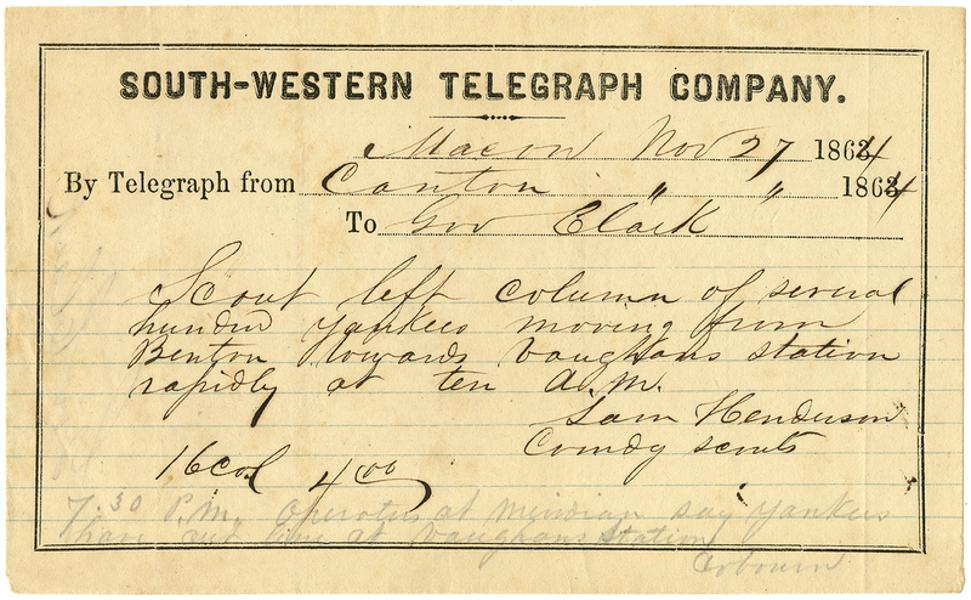 SOUTH-WESTERN TELEGRAPH COMPANY.
Macon Nov 27 1864
By Telegraph from Canton " " 1864
To Gov Clark
Scout left column of several
hundred Yankees moving from
Benton towards Vaughans station
rapidly at ten A.M.
Sam Henderson
Comdg scouts
16 col 4 00
7.30 P.M. Operator at Meridian say Yankees
have cut line at Vaughans Station